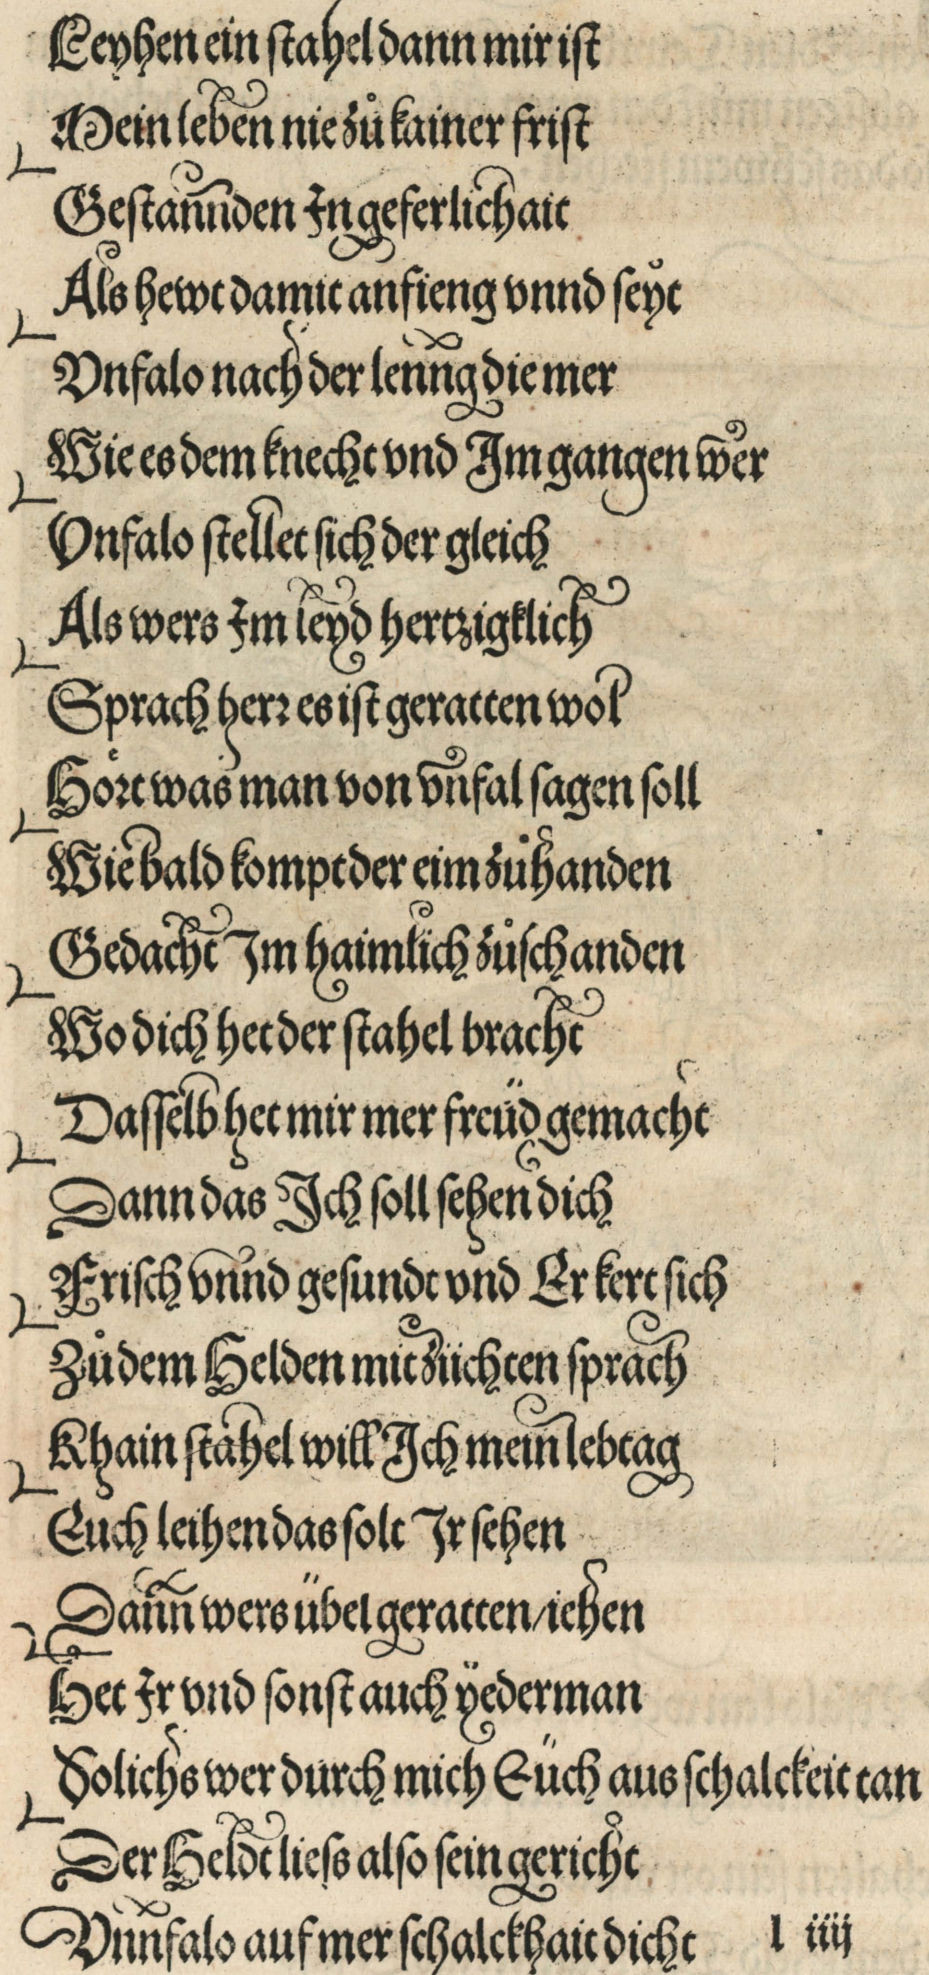 Leyhen ein stahel dann mir ist
Mein leben nie zů kainer frist
Gestannden In geferlichait
Als hewt damit anfieng vnnd seyt
Vnfalo nach der lenng die mer
Wie es dem knecht vnd Im gangen wer
Vnfalo stellet sich der gleich
Als wers Im leyd hertzigklich
Sprach herr es ist geratten wol
Hört was man von vnfal sagen soll
Wie bald kompt der eim zů handen
Gedacht Im haimlich zů schanden
Wo dich het der stahel bracht
Dasselb het mir mer freüd gemacht
Dann das Ich soll sehen dich
Frisch vnnd gesundt vnd Er kert sich
Zů dem Helden mit züchten sprach
Khain stahel will Ich mein lebtag
Euch leihen das solt Ir sehen
Dann wers übel geratten / iehen
Het Ir vnd sonst auch yederman
Solichs wer durch mich Eüch aus schalckeit tan
Der Heldt liess also sein gericht
Vnnfalo auf mer schalckhait dicht l iiij